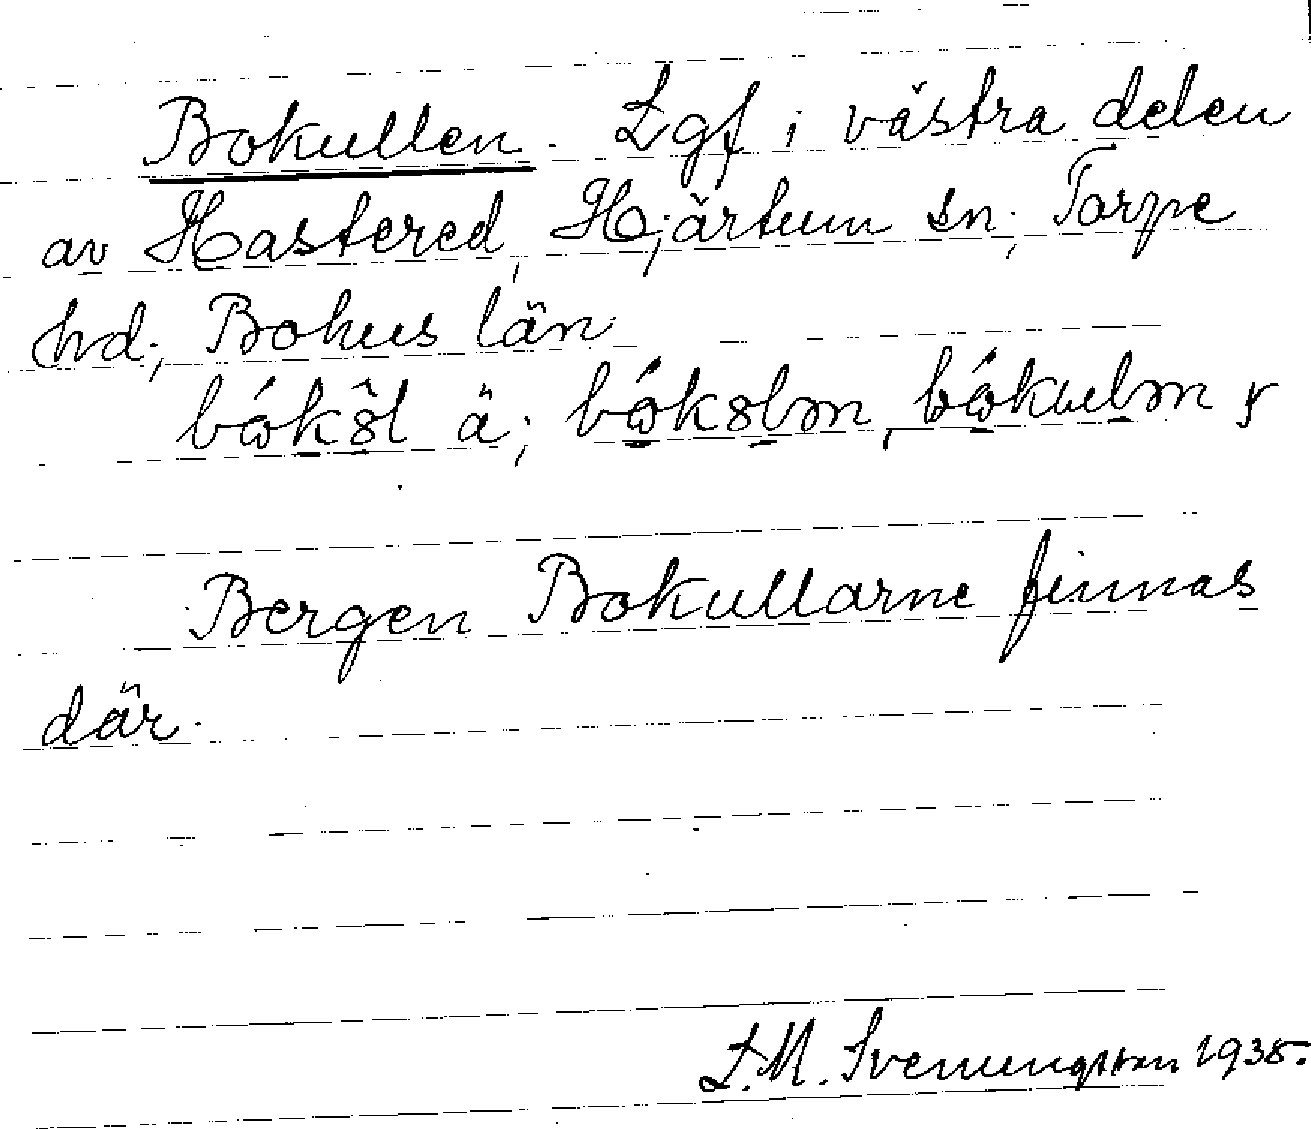 Bokullen. Lgf i västra delen
av Hastered, Hjärtum sn; Torpe
hd; Bohus län
ä;
Bergen Bokullarne finnas
där.
L. M. Svenungsson 1935.